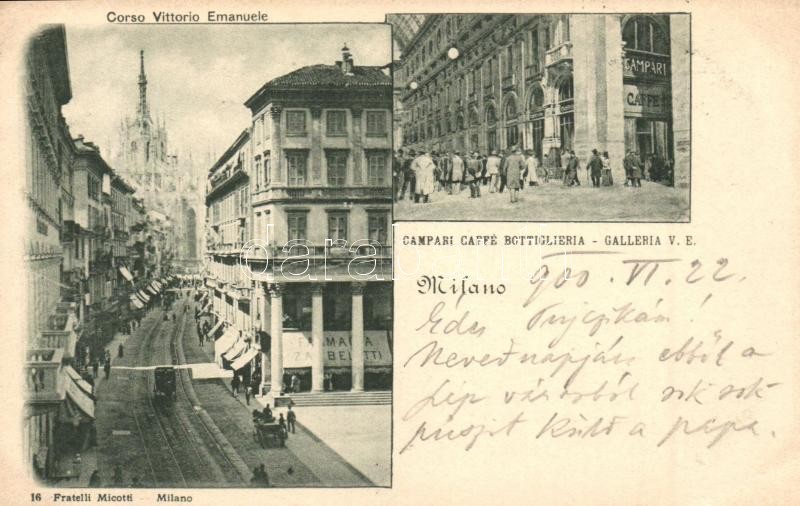 Corso Vittorio Emanuele
CAMPARI
CAFFÈ
FARMACIA
ZAMBELETTI
CAMPARI CAFFÉ BOTTIGLIERIA - GALLERIA V. E.
Milano 900. VI. 22.
Édes
Nevednapján ebből a
szép városból sok sok
puszit küld a papa.
16 Fratelli Micotti - Milano
darabanth